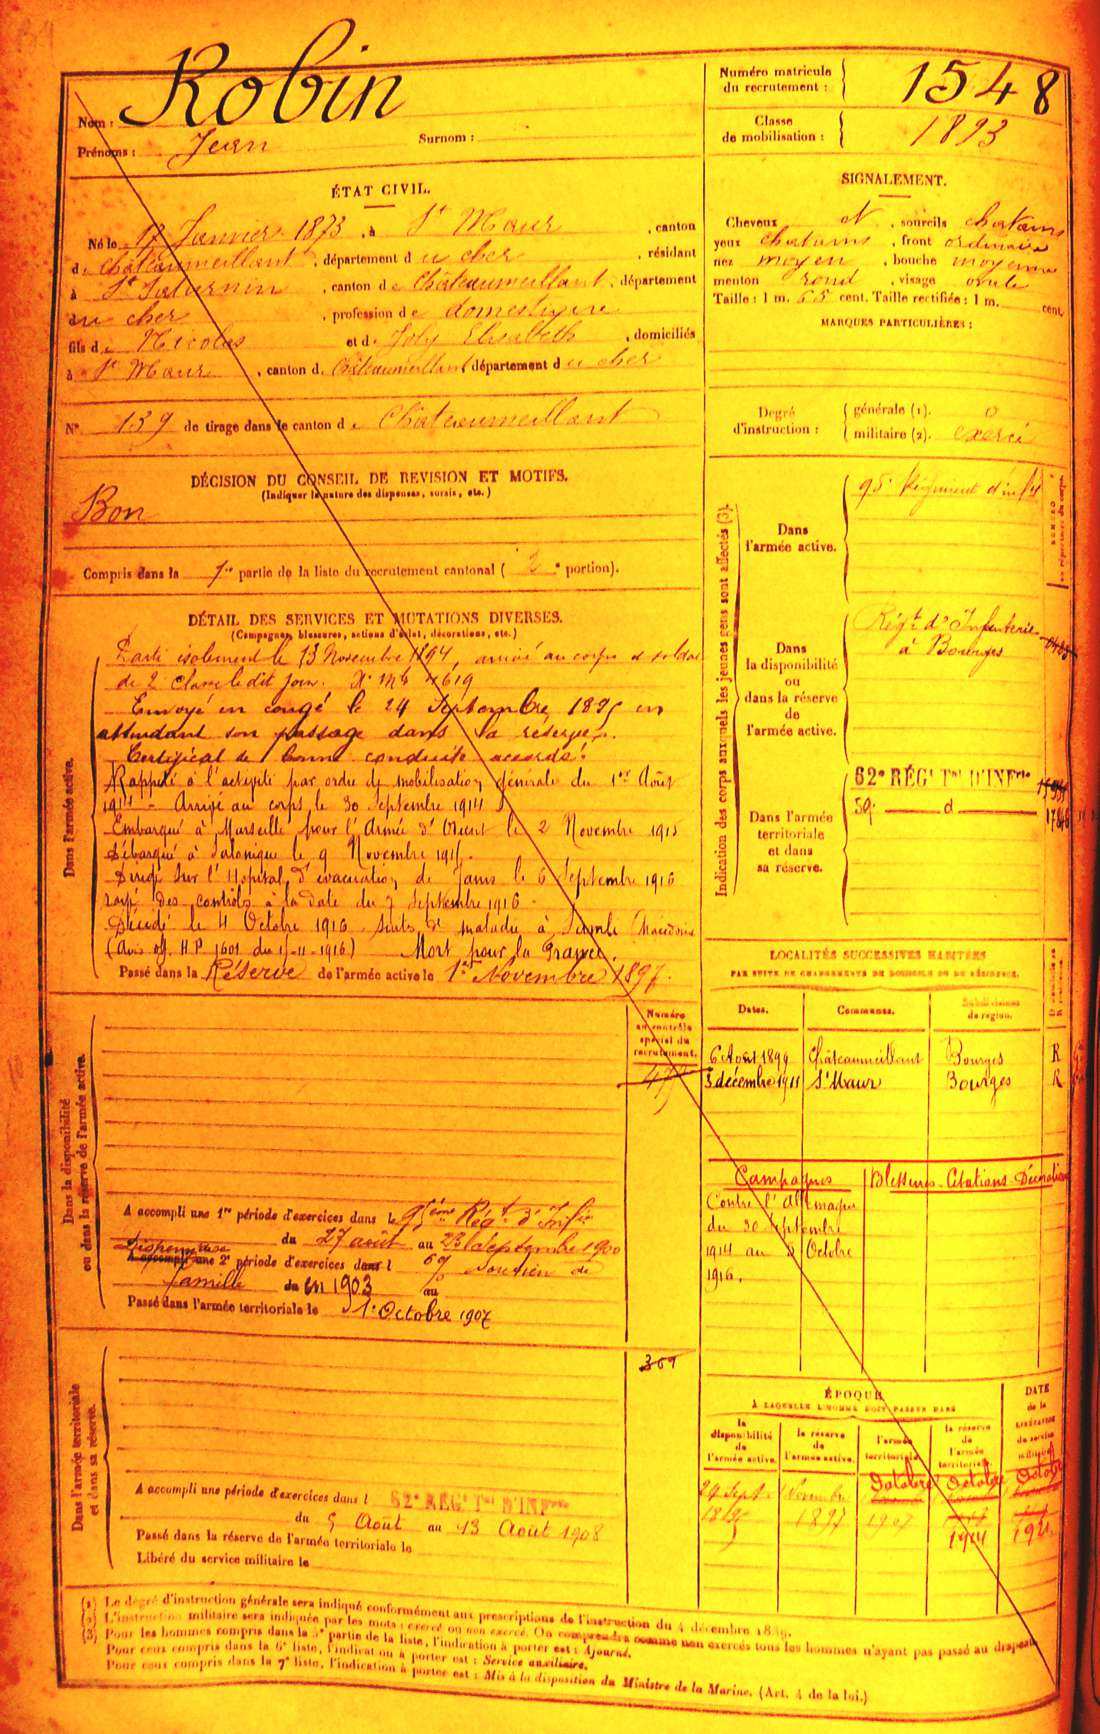 Nom : Robin
Prénoms : Jean Surnom :
Numéro matricule du recrutement : 1548
Classe de mobilisation : 1893
ÉTAT CIVIL.
Né le 17 Janvier 1873, à St Maur, canton
de Châteaumeillant, département du cher, résidant
à St Saturnin, canton de Châteaumeillant, département
du cher, profession de domestique
fils de Nicolas et de Joly Elisabeth, domiciliés
à St Maur, canton de Châteaumeillant département du cher
N° 139 de tirage dans le canton de Châteaumeillant
SIGNALEMENT.
Cheveux N, sourcils chatains
yeux chatains, front ordinaire
nez moyen, bouche moyenne
menton rond, visage ovale
Taille : 1 m. 65 cent. Taille rectifiée : 1 m. cent.
MARQUES PARTICULIÈRES :
Degré d'instruction : générale (1). 0
militaire (2). exercé
DÉCISION DU CONSEIL DE REVISION ET MOTIFS.
(Indiquer la nature des dispenses, sursis, etc.)
Bon
Compris dans la 1re partie de la liste du recrutement cantonal ( 2e portion).
DÉTAIL DES SERVICES ET MUTATIONS DIVERSES.
(Campagnes, blessures, actions d'éclat, décorations, etc.)
Dans l'armée active.
Parti isolement le 13 Novembre 1894, arrivé au corps et soldat
de 2e Classe le dit jour. N° Mle 4619
Envoyé en congé le 24 Septembre 1895 en
attendant son passage dans la réserve.
Certificat de bonne conduite accordé.
Rappelé à l'activité par ordre de mobilisation générale du 1er Août
1914 - Arrivé au corps le 30 Septembre 1914
Embarqué à Marseille pour l'Armée d'Orient le 2 Novembre 1915
Débarqué à Salonique le 9 Novembre 1915.
Dirigé sur l'Hopital d'évacuation de le 6 Septembre 1916
rayé des contrôles à la date du 7 Septembre 1916
Décédé le 4 Octobre 1916 suites de maladie à Macédoine
(Avis off. H.P. 1601 du 15-11-1916) Mort pour la France.
Passé dans la Réserve de l'armée active le 1er Novembre 1897.
Indication des corps auxquels les jeunes gens sont affectés (3).
Dans l'armée active. 95e Régiment d'inf
Dans la disponibilité ou dans la réserve de l'armée active. Régt d'Infanterie
à Bourges
Dans l'armée territoriale et dans sa réserve. 62e RÉGt Tal D'INFrie
59e d
LOCALITÉS SUCCESSIVES HABITÉES
PAR SUITE DE CHANGEMENTS DE DOMICILE OU DE RÉSIDENCE.
Dates. Communes. Subdivisions de région.
6 Août 1899 Châteaumeillant Bourges R
3 décembre 1911 St Maur Bourges R
Dans la disponibilité
ou dans la réserve de l'armée active.
Numéro au contrôle spécial du recrutement.
A accompli une 1re période d'exercices dans le 95ème Régt d'Infie
du 27 août au 23 Septembre 1900
Dispensé
A accompli une 2e période d'exercices dans l
soutien de
famille en 1903 au
Passé dans l'armée territoriale le 1er Octobre 1907
Campagnes
Contre l'Allemagne
du 30 Septembre
1914 au Octobre
1916.
Blessures - Citations - Décorations
Dans l'armée territoriale
et dans sa réserve.
369
A accompli une période d'exercices dans l 62e RÉGt Tal D'INFrie
du 5 Août au 13 Août 1908
Passé dans la réserve de l'armée territoriale le
Libéré du service militaire le
ÉPOQUE
À LAQUELLE L'HOMME DOIT PASSER DANS
la disponibilité de l'armée active. la réserve de l'armée active. l'armée territoriale. la réserve de l'armée territoriale.
DATE de la LIBÉRATION du service militaire.
24 Sept. 1895 Novembre 1897 Octobre 1907 Octobre 1914 Octobre
(1) Le degré d'instruction générale sera indiqué conformément aux prescriptions de l'instruction du 4 décembre 1889.
(2) L'instruction militaire sera indiquée par les mots : exercé ou non exercé. On comprendra comme non exercés tous les hommes n'ayant pas passé au drapeau.
(3) Pour les hommes compris dans la 5e partie de la liste, l'indication à porter est : Ajourné.
Pour ceux compris dans la 6e liste, l'indication à porter est : Service auxiliaire.
Pour ceux compris dans la 7e liste, l'indication à porter est : Mis à la disposition du Ministre de la Marine. (Art. 4 de la loi.)